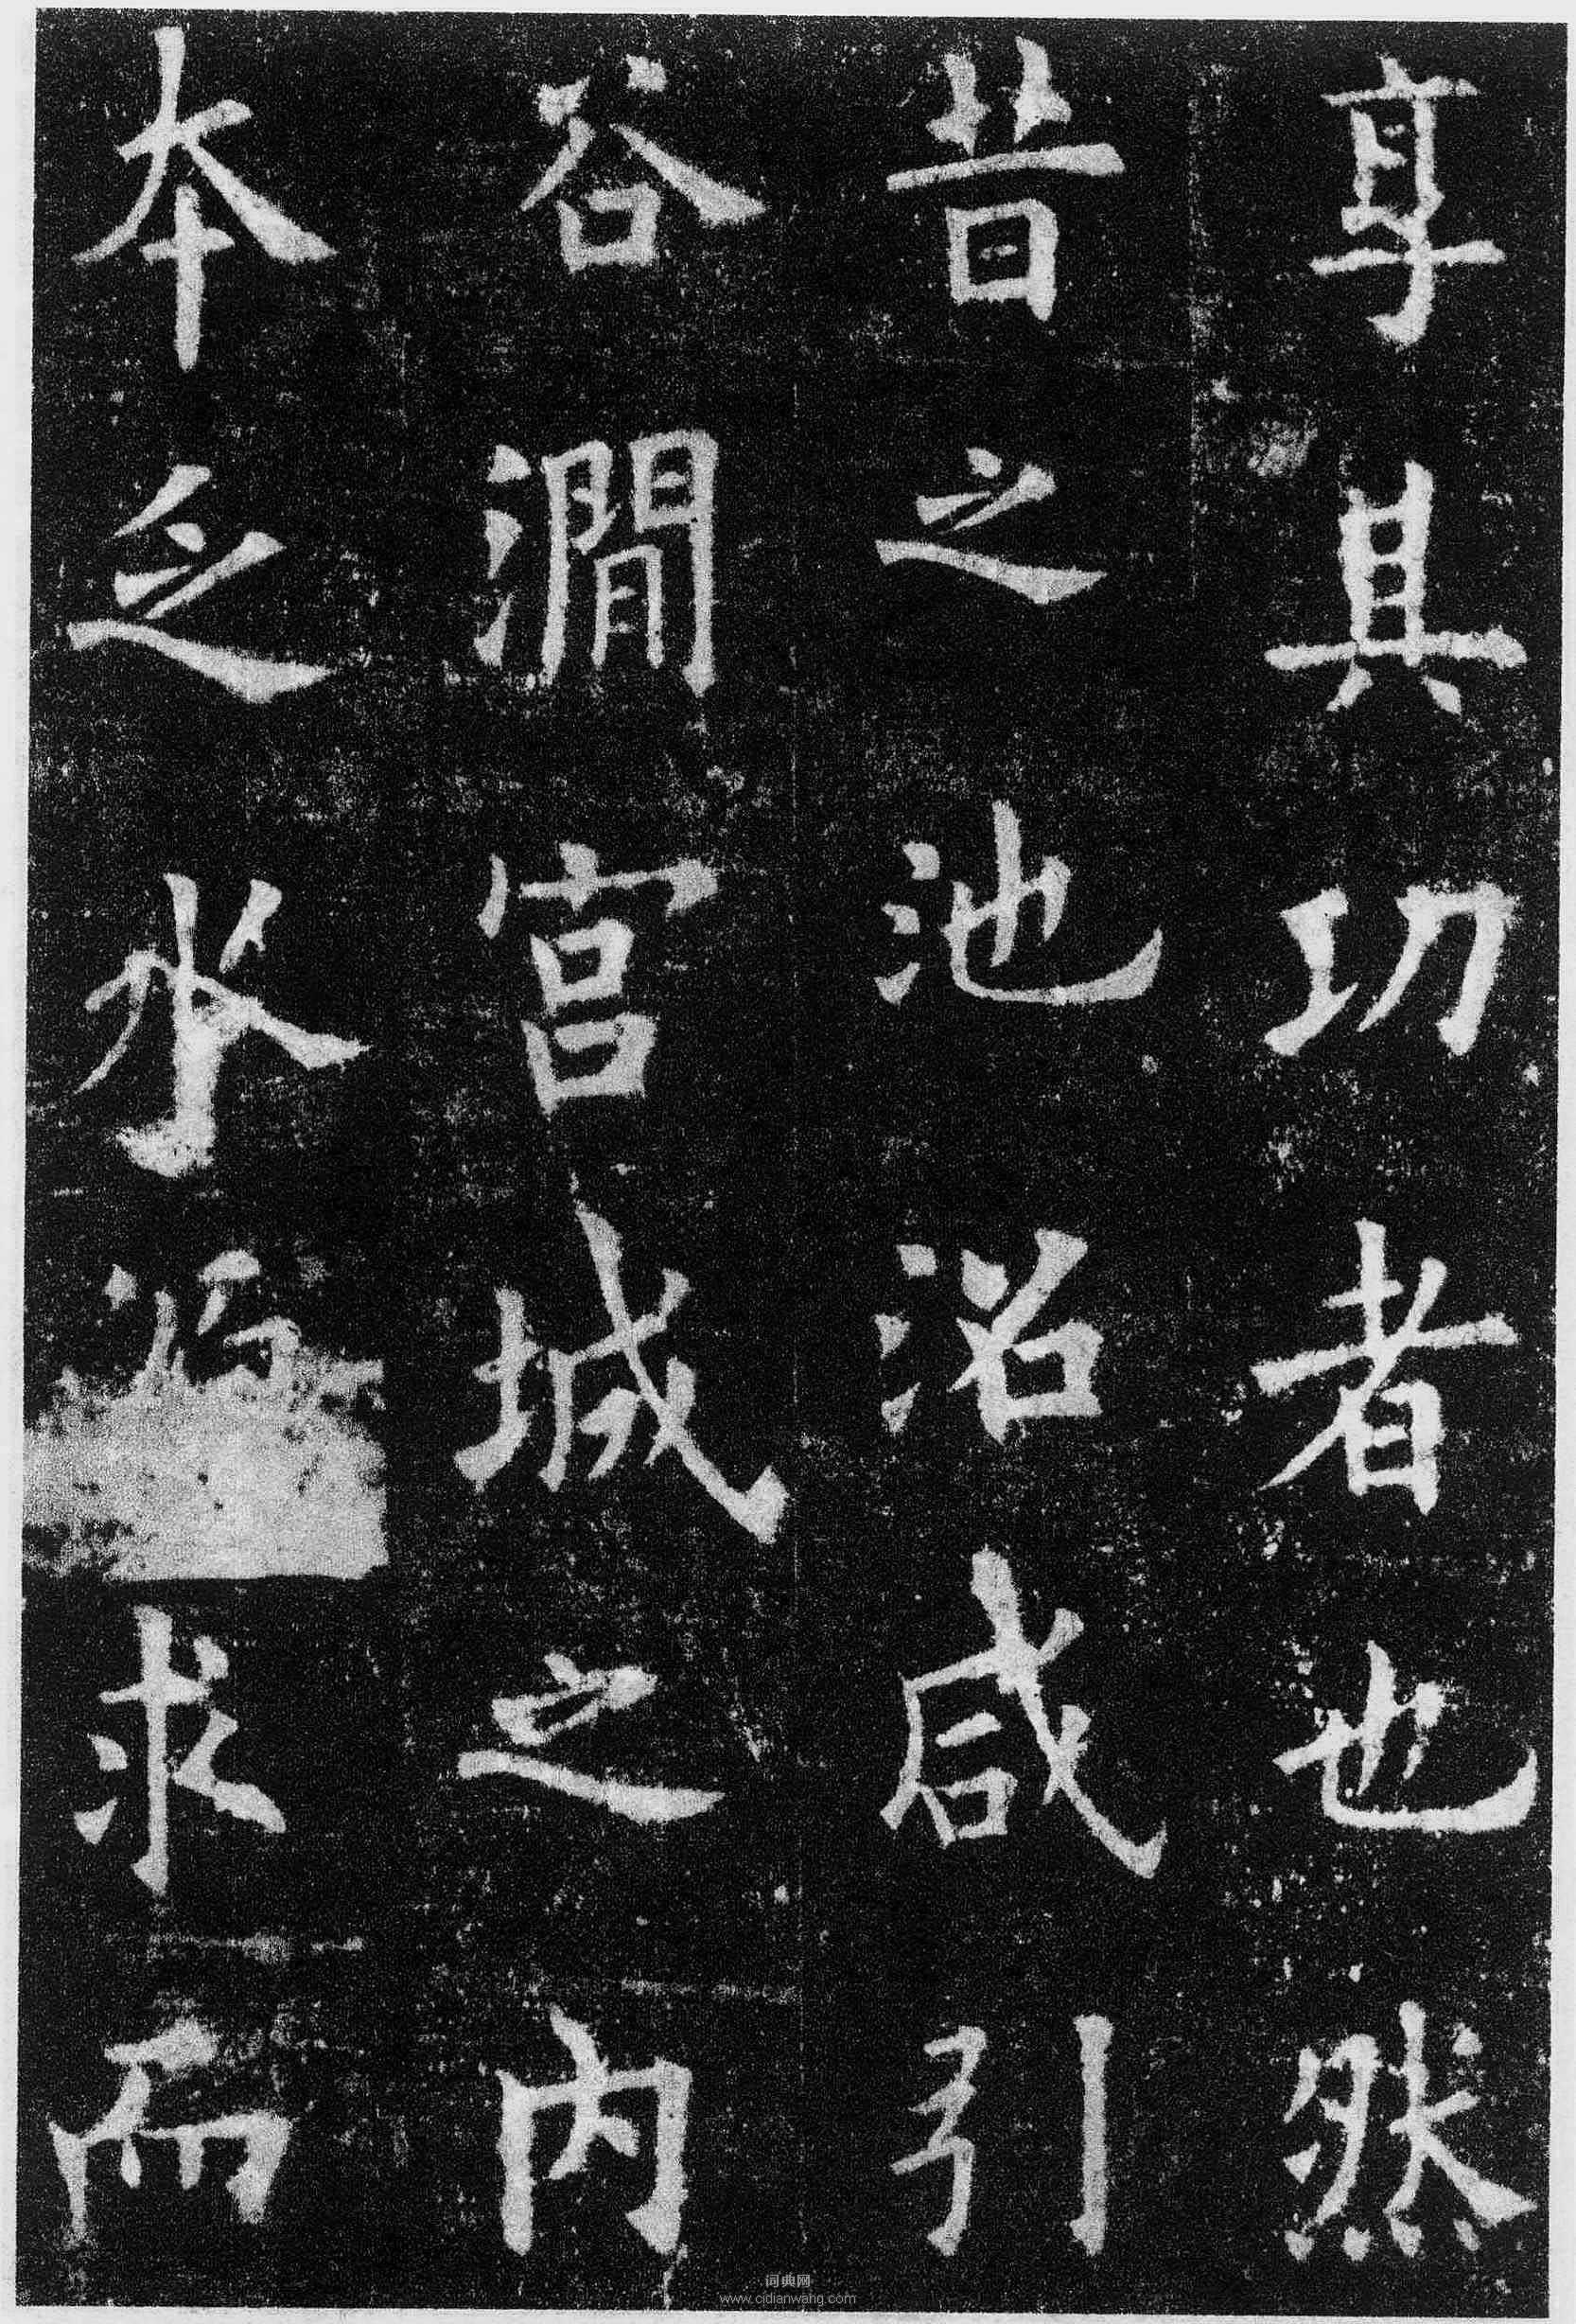 享其功者也然
昔之池沼咸引
谷澗宫城之內
本乏水源求而
词典网
www.cidianwang.com